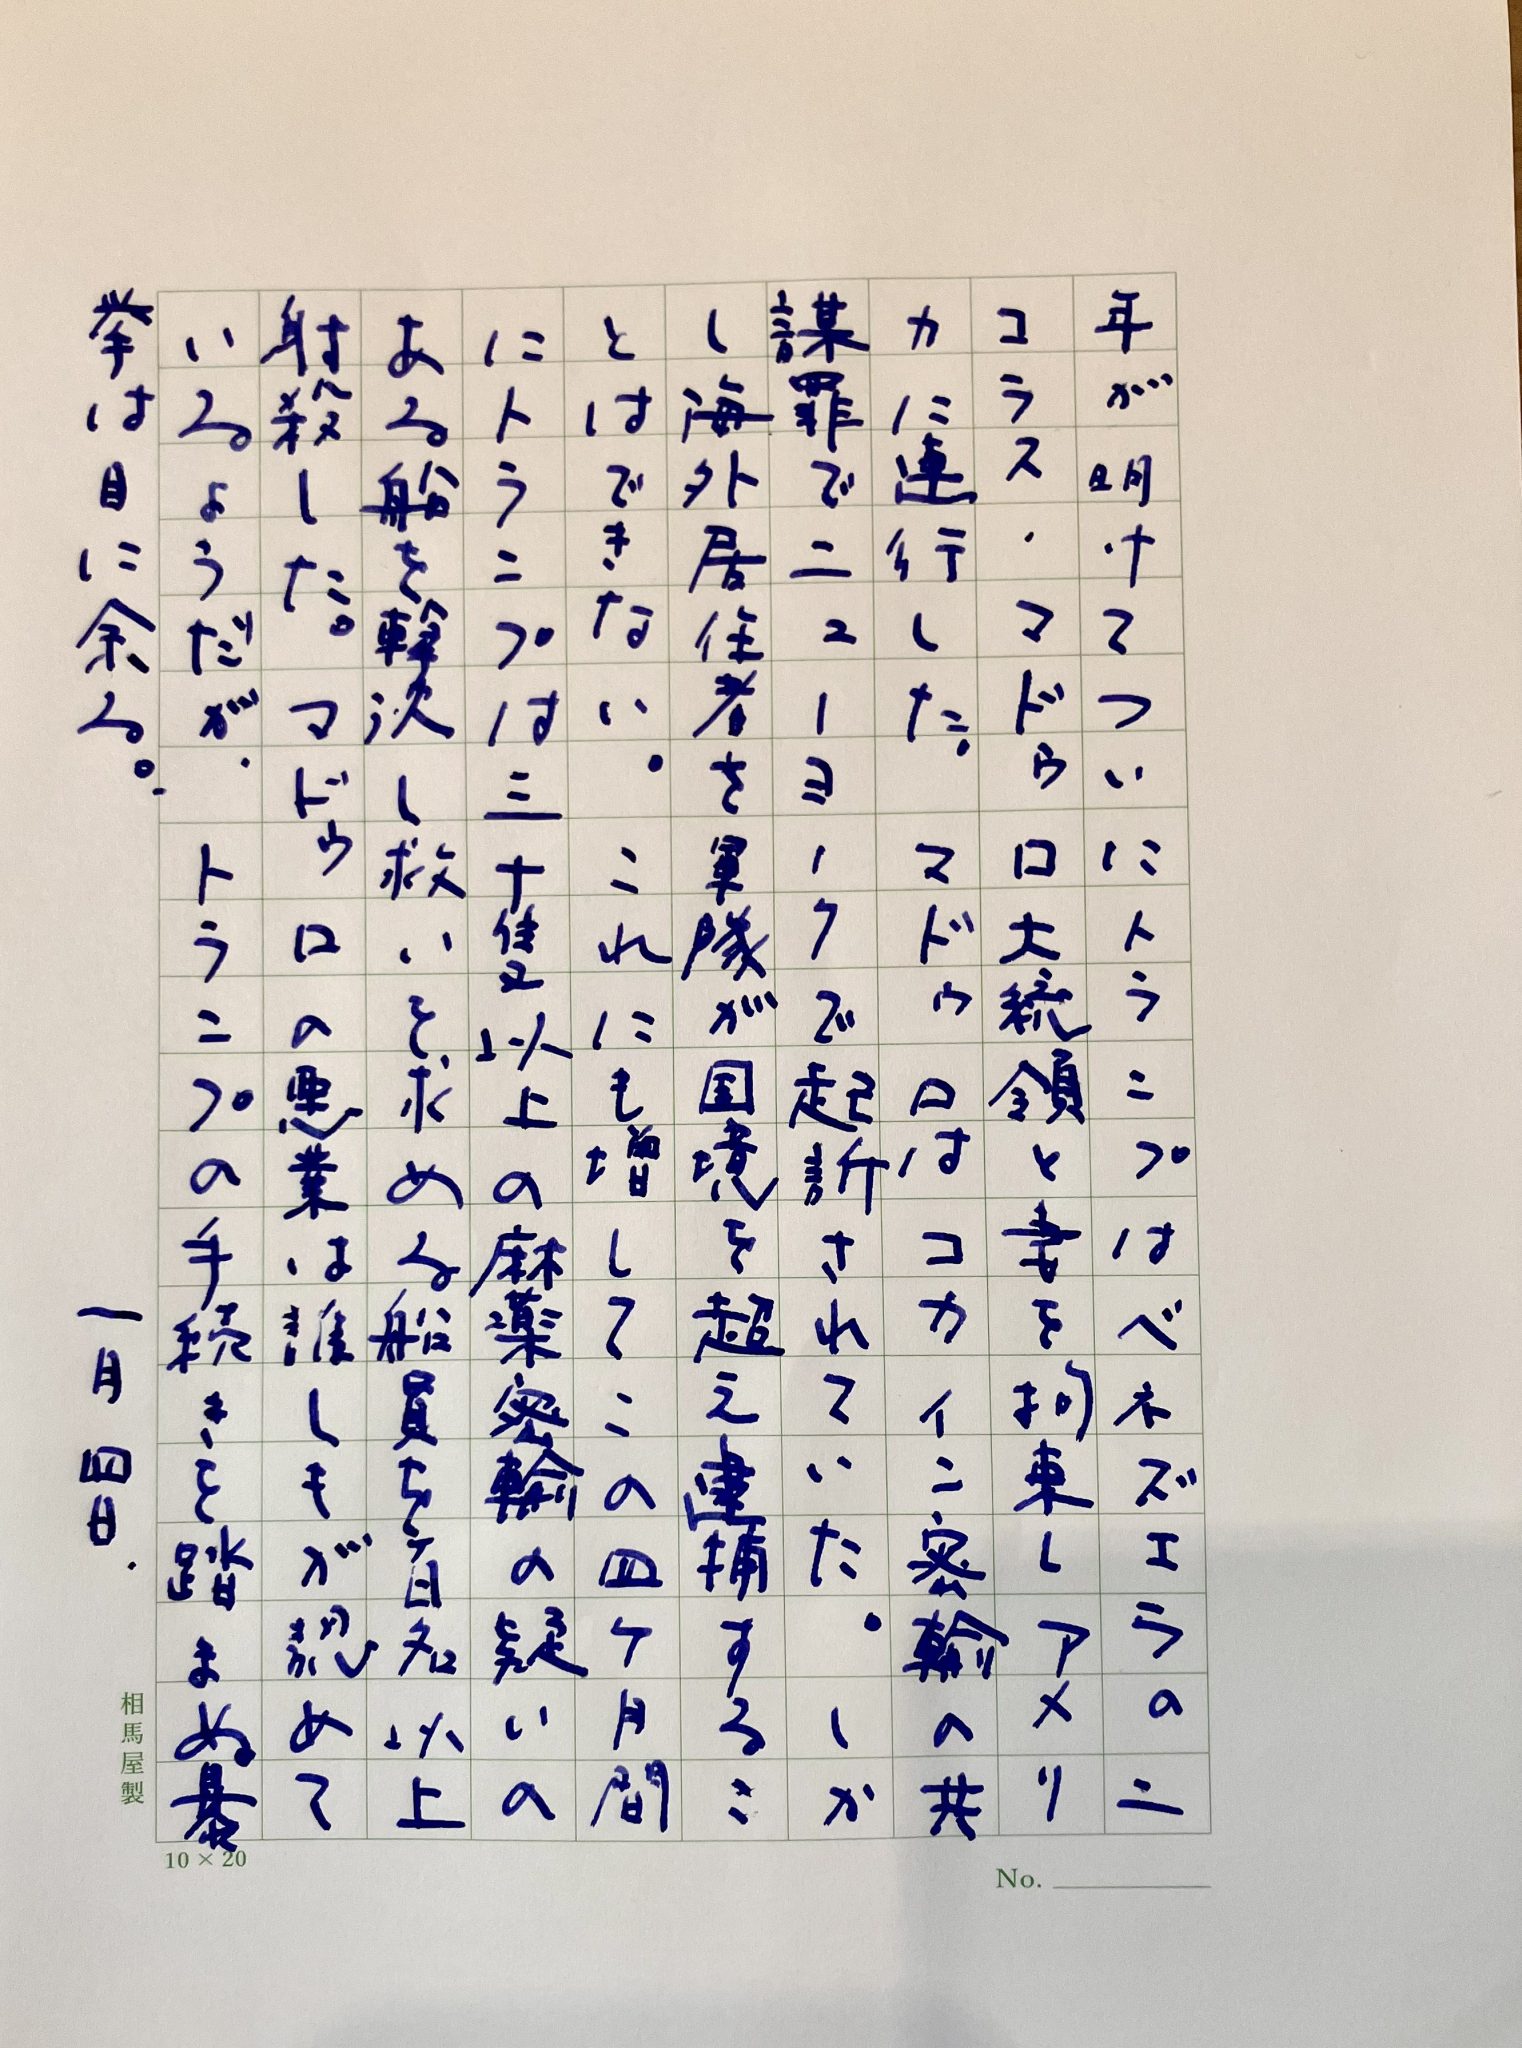 年が明けてついにトランプはベネズエラのニ
コラス・マドゥロ大統領と妻を拘束しアメリ
カに連行した。マドゥロはコカイン密輸の共
謀罪でニューヨークで起訴されていた。しか
し海外居住者を軍隊が国境を超え逮捕するこ
とはできない。これにも増してこの四ケ月間
にトランプは三十隻以上の麻薬密輸の疑いの
ある船を撃沈し救いを求める船員を百名以上
射殺した。マドゥロの悪業は誰しもが認めて
いるようだが、トランプの手続きを踏まぬ暴
挙は目に余る。
一月四日.
相馬屋製
10×20
No.